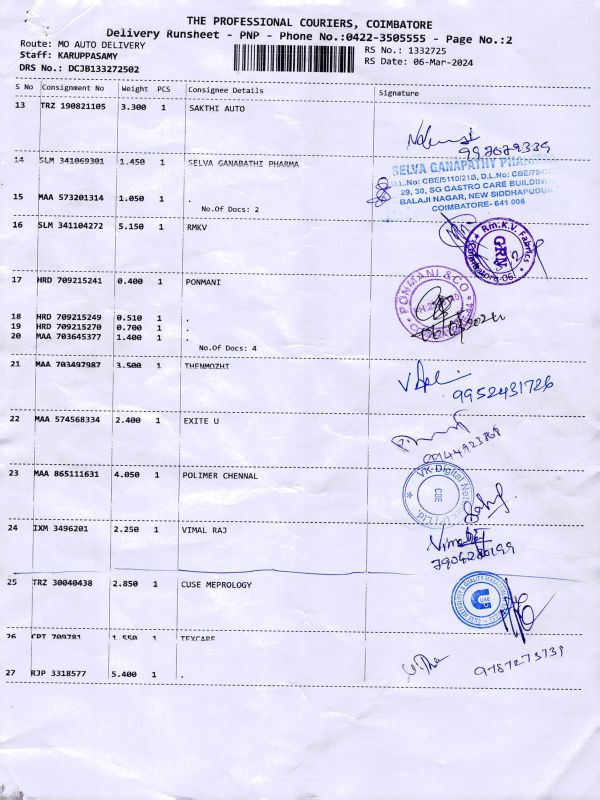 THE PROFESSIONAL COURIERS, COIMBATORE
Delivery Runsheet - PNP - Phone No.:0422-3505555 - Page No.:2
Route: MO AUTO DELIVERY
Staff: KARUPPASAMY
DRS No.: DCJB133272502
RS No.: 1332725
RS Date: 06-Mar-2024
S No Consignment No Weight PCS Consignee Details Signature
13 TRZ 190821105 3.300 1 SAKTHI AUTO
14 SLM 341069301 1.450 1 SELVA GANABATHI PHARMA
SELVA GANAPATHY
D.L.No: CBE/5110/21B, D.L.No: CBE/
29, 30, SG GASTRO CARE BUILDING
BALAJI NAGAR, NEW SIDDHAPUDUR
COIMBATORE- 641 006
15 MAA 573201314 1.050 1 .
No.Of Docs: 2
16 SLM 341104272 5.150 1 RMKV
Rm.K.V. Fabrics
GRN
17 HRD 709215241 0.400 1 PONMANI
PONMANI & CO
18 HRD 709215249 0.510 1 .
19 HRD 709215270 0.700 1 .
20 MAA 703645377 1.400 1 .
No.Of Docs: 4
21 MAA 703497987 3.500 1 THENMOZHI
9952431726
22 MAA 574568334 2.400 1 EXITE U
23 MAA 865111631 4.050 1 POLIMER CHENNAL
VK Digital
CBE
24 IXM 3496201 2.250 1 VIMAL RAJ
25 TRZ 30040438 2.850 1 CUSE MEPROLOGY
26 CPT 709781 1.550 1 TEXCARE
27 RJP 3318577 5.400 1 .
9787273731